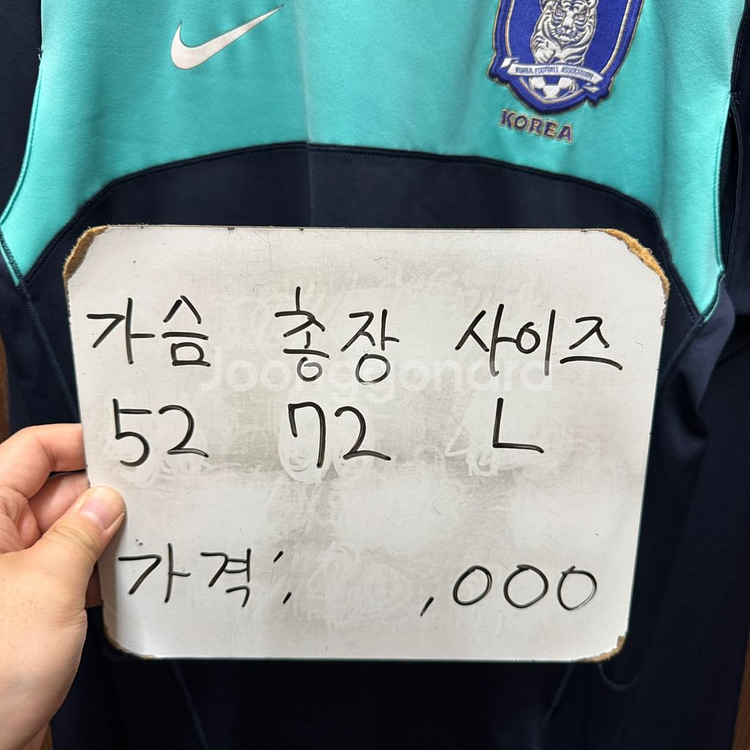 KOREA FOOTBALL ASSOCIATION
KOREA
가슴 총장 사이즈
52 72 L
Joonggonara
가격: ,000